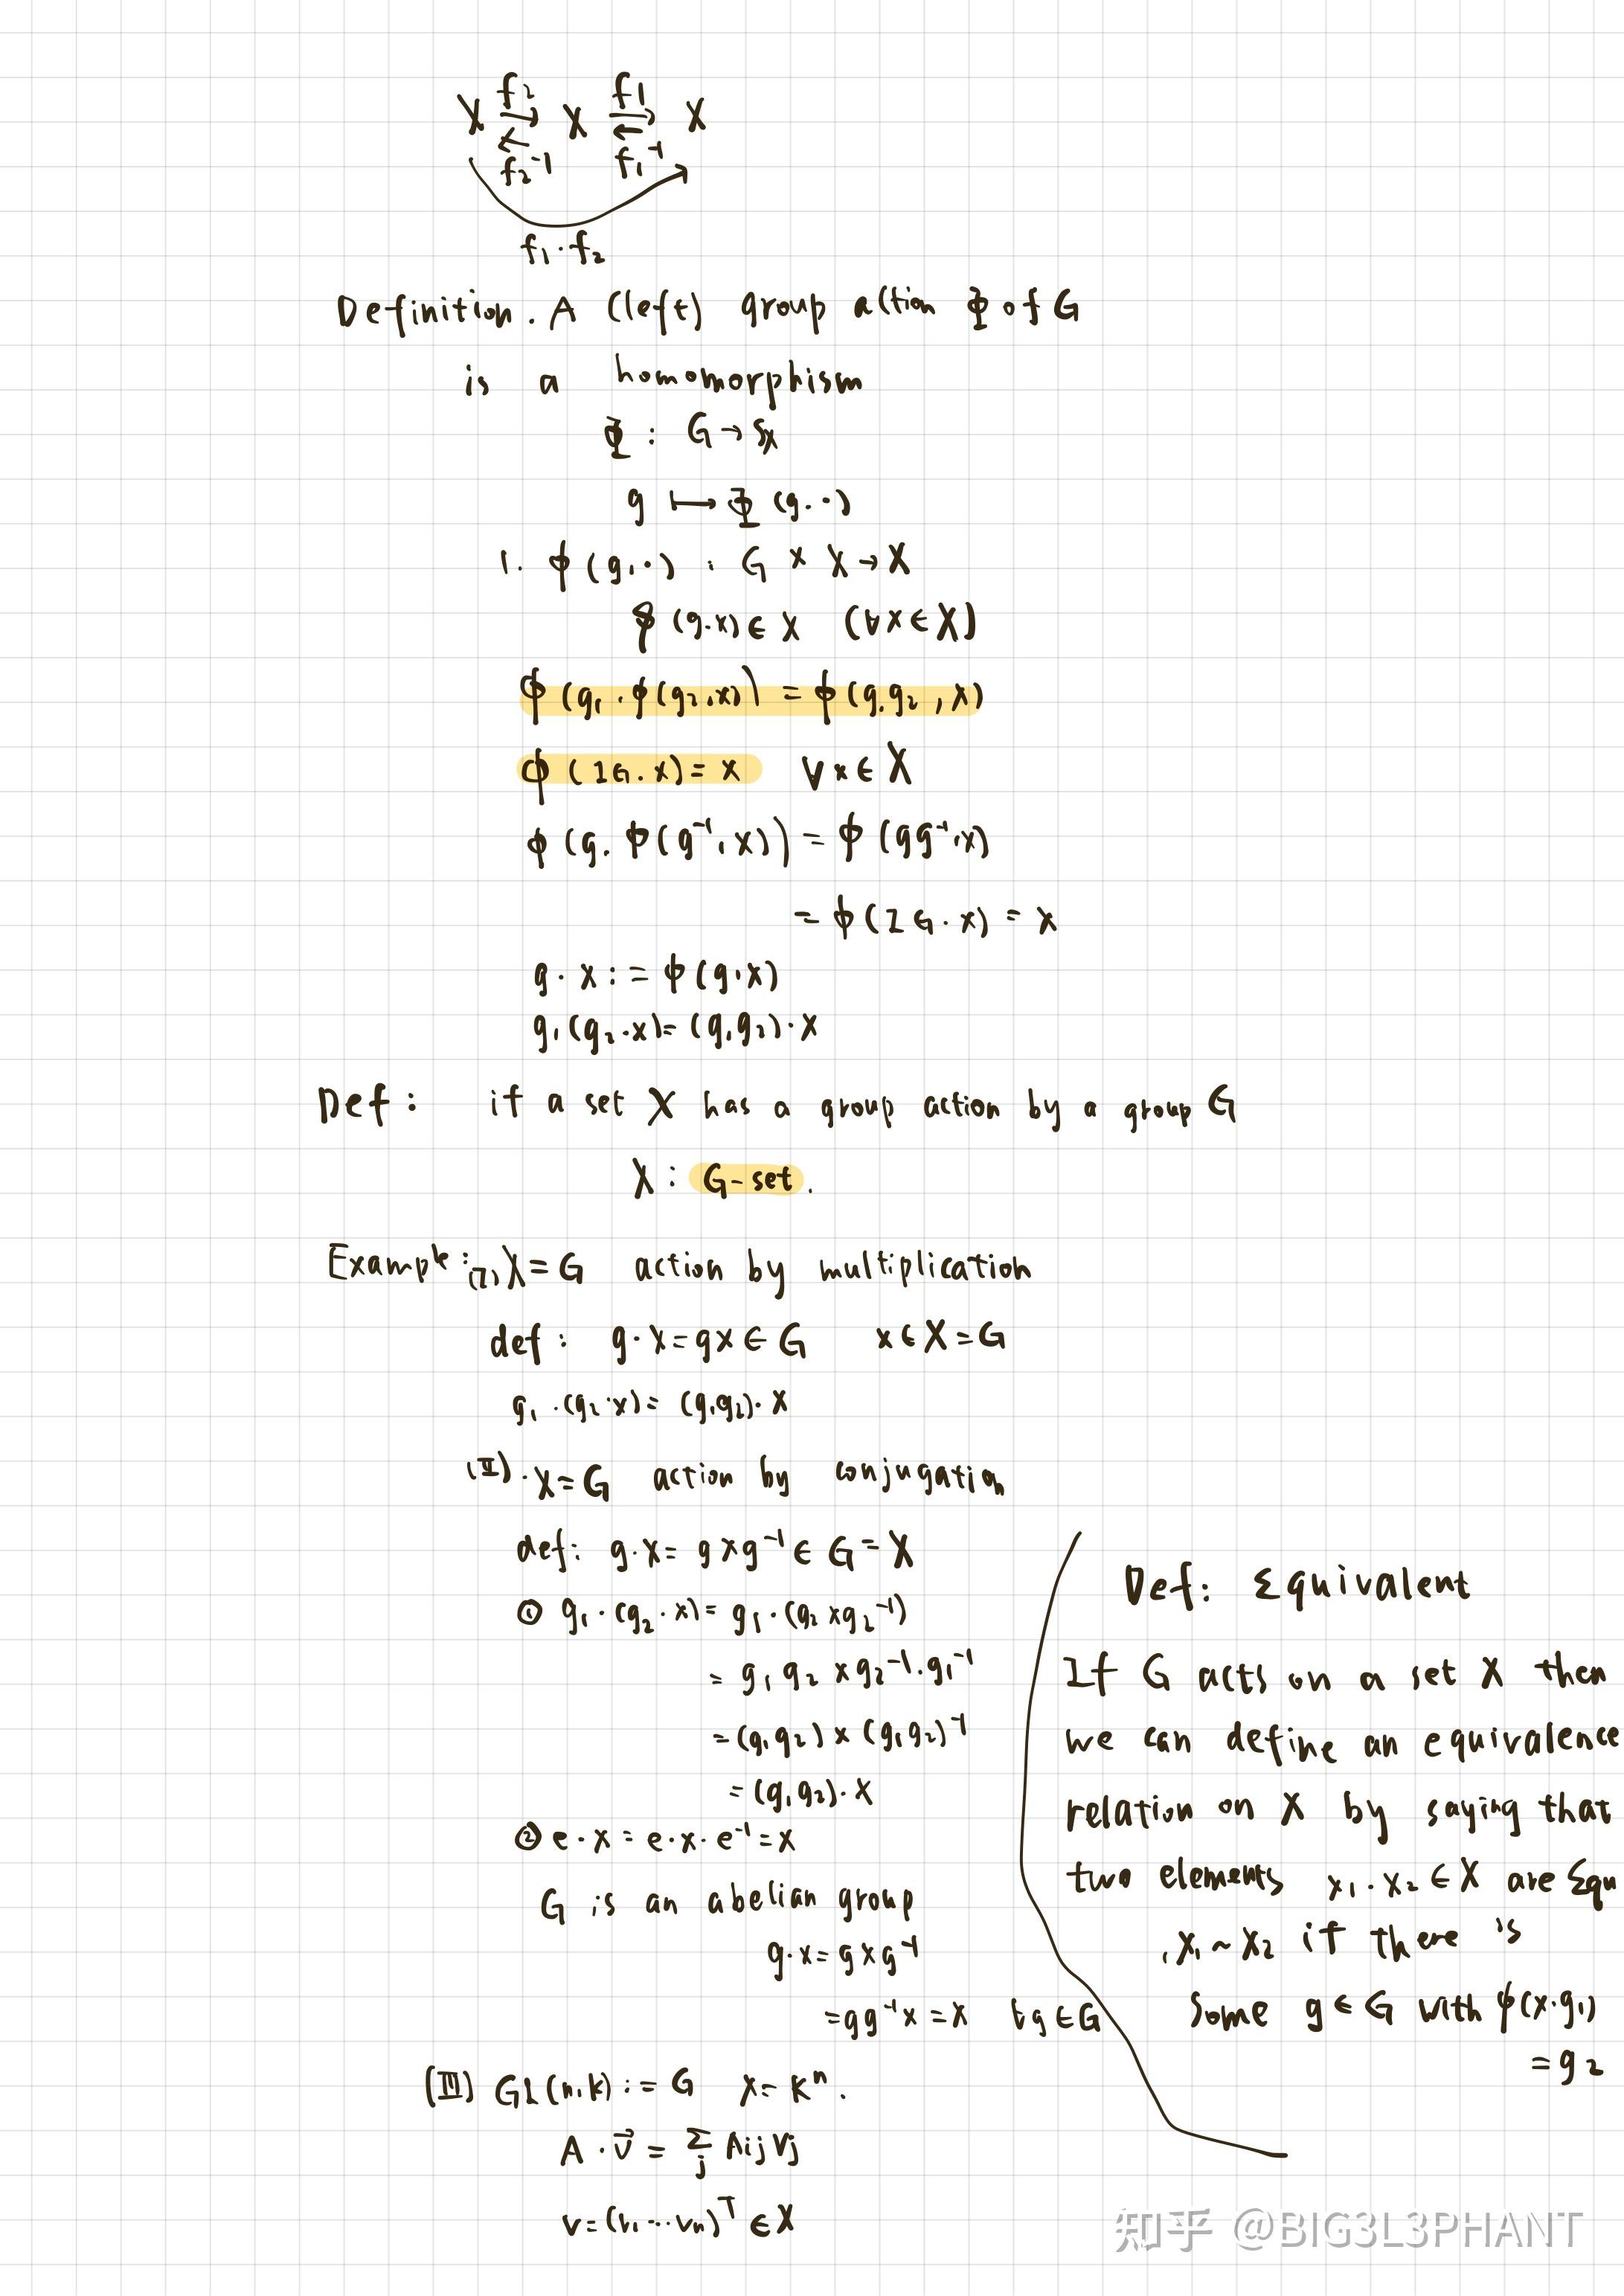 X f₂ ⇄ f₂⁻¹ X f₁ ⇄ f₁⁻¹ X
f₁·f₂
Definition. A (left) group action Φ of G
is a homomorphism
Φ : G → Sx
g ↦ Φ (g.·)
1. ϕ (g,·) : G × X → X
ϕ (g.x) ∈ X (∀x ∈ X)
ϕ (g₁.ϕ(g₂,x)) = ϕ (g₁g₂, x)
ϕ (1G.x) = x ∀x ∈ X
ϕ (g. ϕ(g⁻¹, x)) = ϕ (gg⁻¹,x)
= ϕ (1G.x) = x
g·x := ϕ(g,x)
g₁(g₂·x) = (g₁g₂)·x
Def: if a set X has a group action by a group G
X : G-set.
Example: (I) X = G action by multiplication
def: g·x = gx ∈ G x ∈ X = G
g₁·(g₂·x) = (g₁g₂)·x
(II)·X = G action by conjugation
def: g·x = gxg⁻¹ ∈ G = X
① g₁·(g₂·x) = g₁·(g₂xg₂⁻¹)
= g₁g₂xg₂⁻¹·g₁⁻¹
= (g₁g₂)x(g₁g₂)⁻¹
= (g₁g₂)·x
② e·x = e·x·e⁻¹ = x
G is an abelian group
g·x = gxg⁻¹
= gg⁻¹x = x ∀g ∈ G
(III) GL(n,k) := G X = kⁿ.
A·v⃗ = Σj Aij Vj
v = (v₁ ⋯ vn)ᵀ ∈ X
Def: Equivalent
If G acts on a set X then
we can define an equivalence
relation on X by saying that
two elements x₁.x₂ ∈ X are Equ
, x₁ ~ x₂ if there is
some g ∈ G with ϕ(x·g₁)
= g₂
知乎 @BIG3L3PHANT